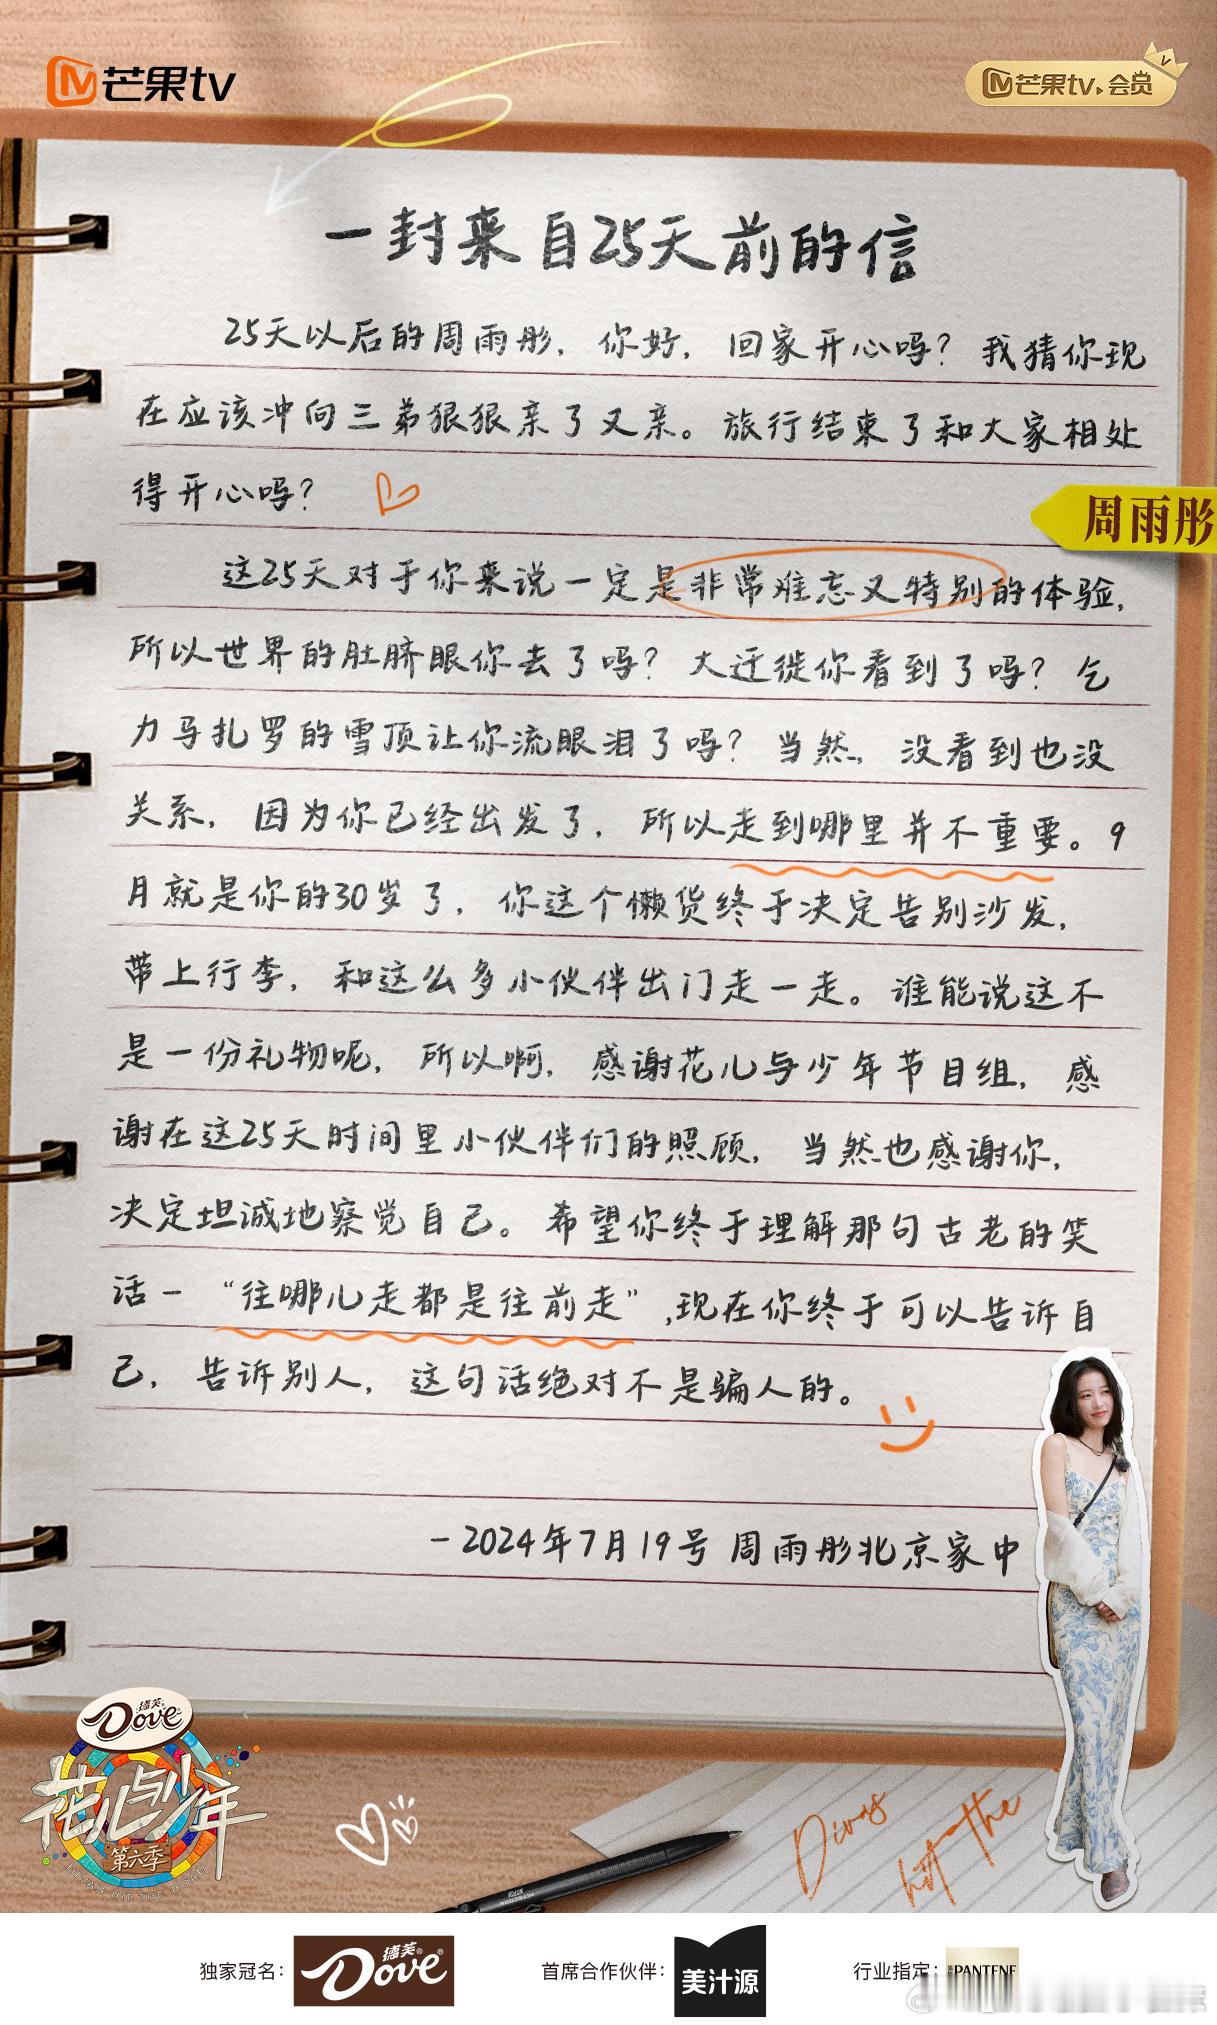 芒果tv
芒果tv 会员
一封来自25天前的信
25天以后的周雨彤，你好，回家开心吗？我猜你现
在应该冲向三弟狠狠亲了又亲。旅行结束了和大家相处
得开心吗？
周雨彤
这25天对于你来说一定是非常难忘又特别的体验，
所以世界的肚脐眼你去了吗？大迁徙你看到了吗？乞
力马扎罗的雪顶让你流眼泪了吗？当然，没看到也没
关系，因为你已经出发了，所以走到哪里并不重要。9
月就是你的30岁了，你这个懒货终于决定告别沙发，
带上行李，和这么多小伙伴出门走一走。谁能说这不
是一份礼物呢，所以啊，感谢花儿与少年节目组，感
谢在这25天时间里小伙伴们的照顾，当然也感谢你，
决定坦诚地察觉自己。希望你终于理解那句古老的笑
话－“往哪儿走都是往前走”，现在你终于可以告诉自
己，告诉别人，这句话绝对不是骗人的。
－2024年7月19号 周雨彤北京家中
德芙
Dove
花儿与少年
第六季
DIVAS HIT THE ROAD
Divas
hit the
独家冠名：
德芙
Dove
首席合作伙伴：
美汁源
行业指定：
PANTENE